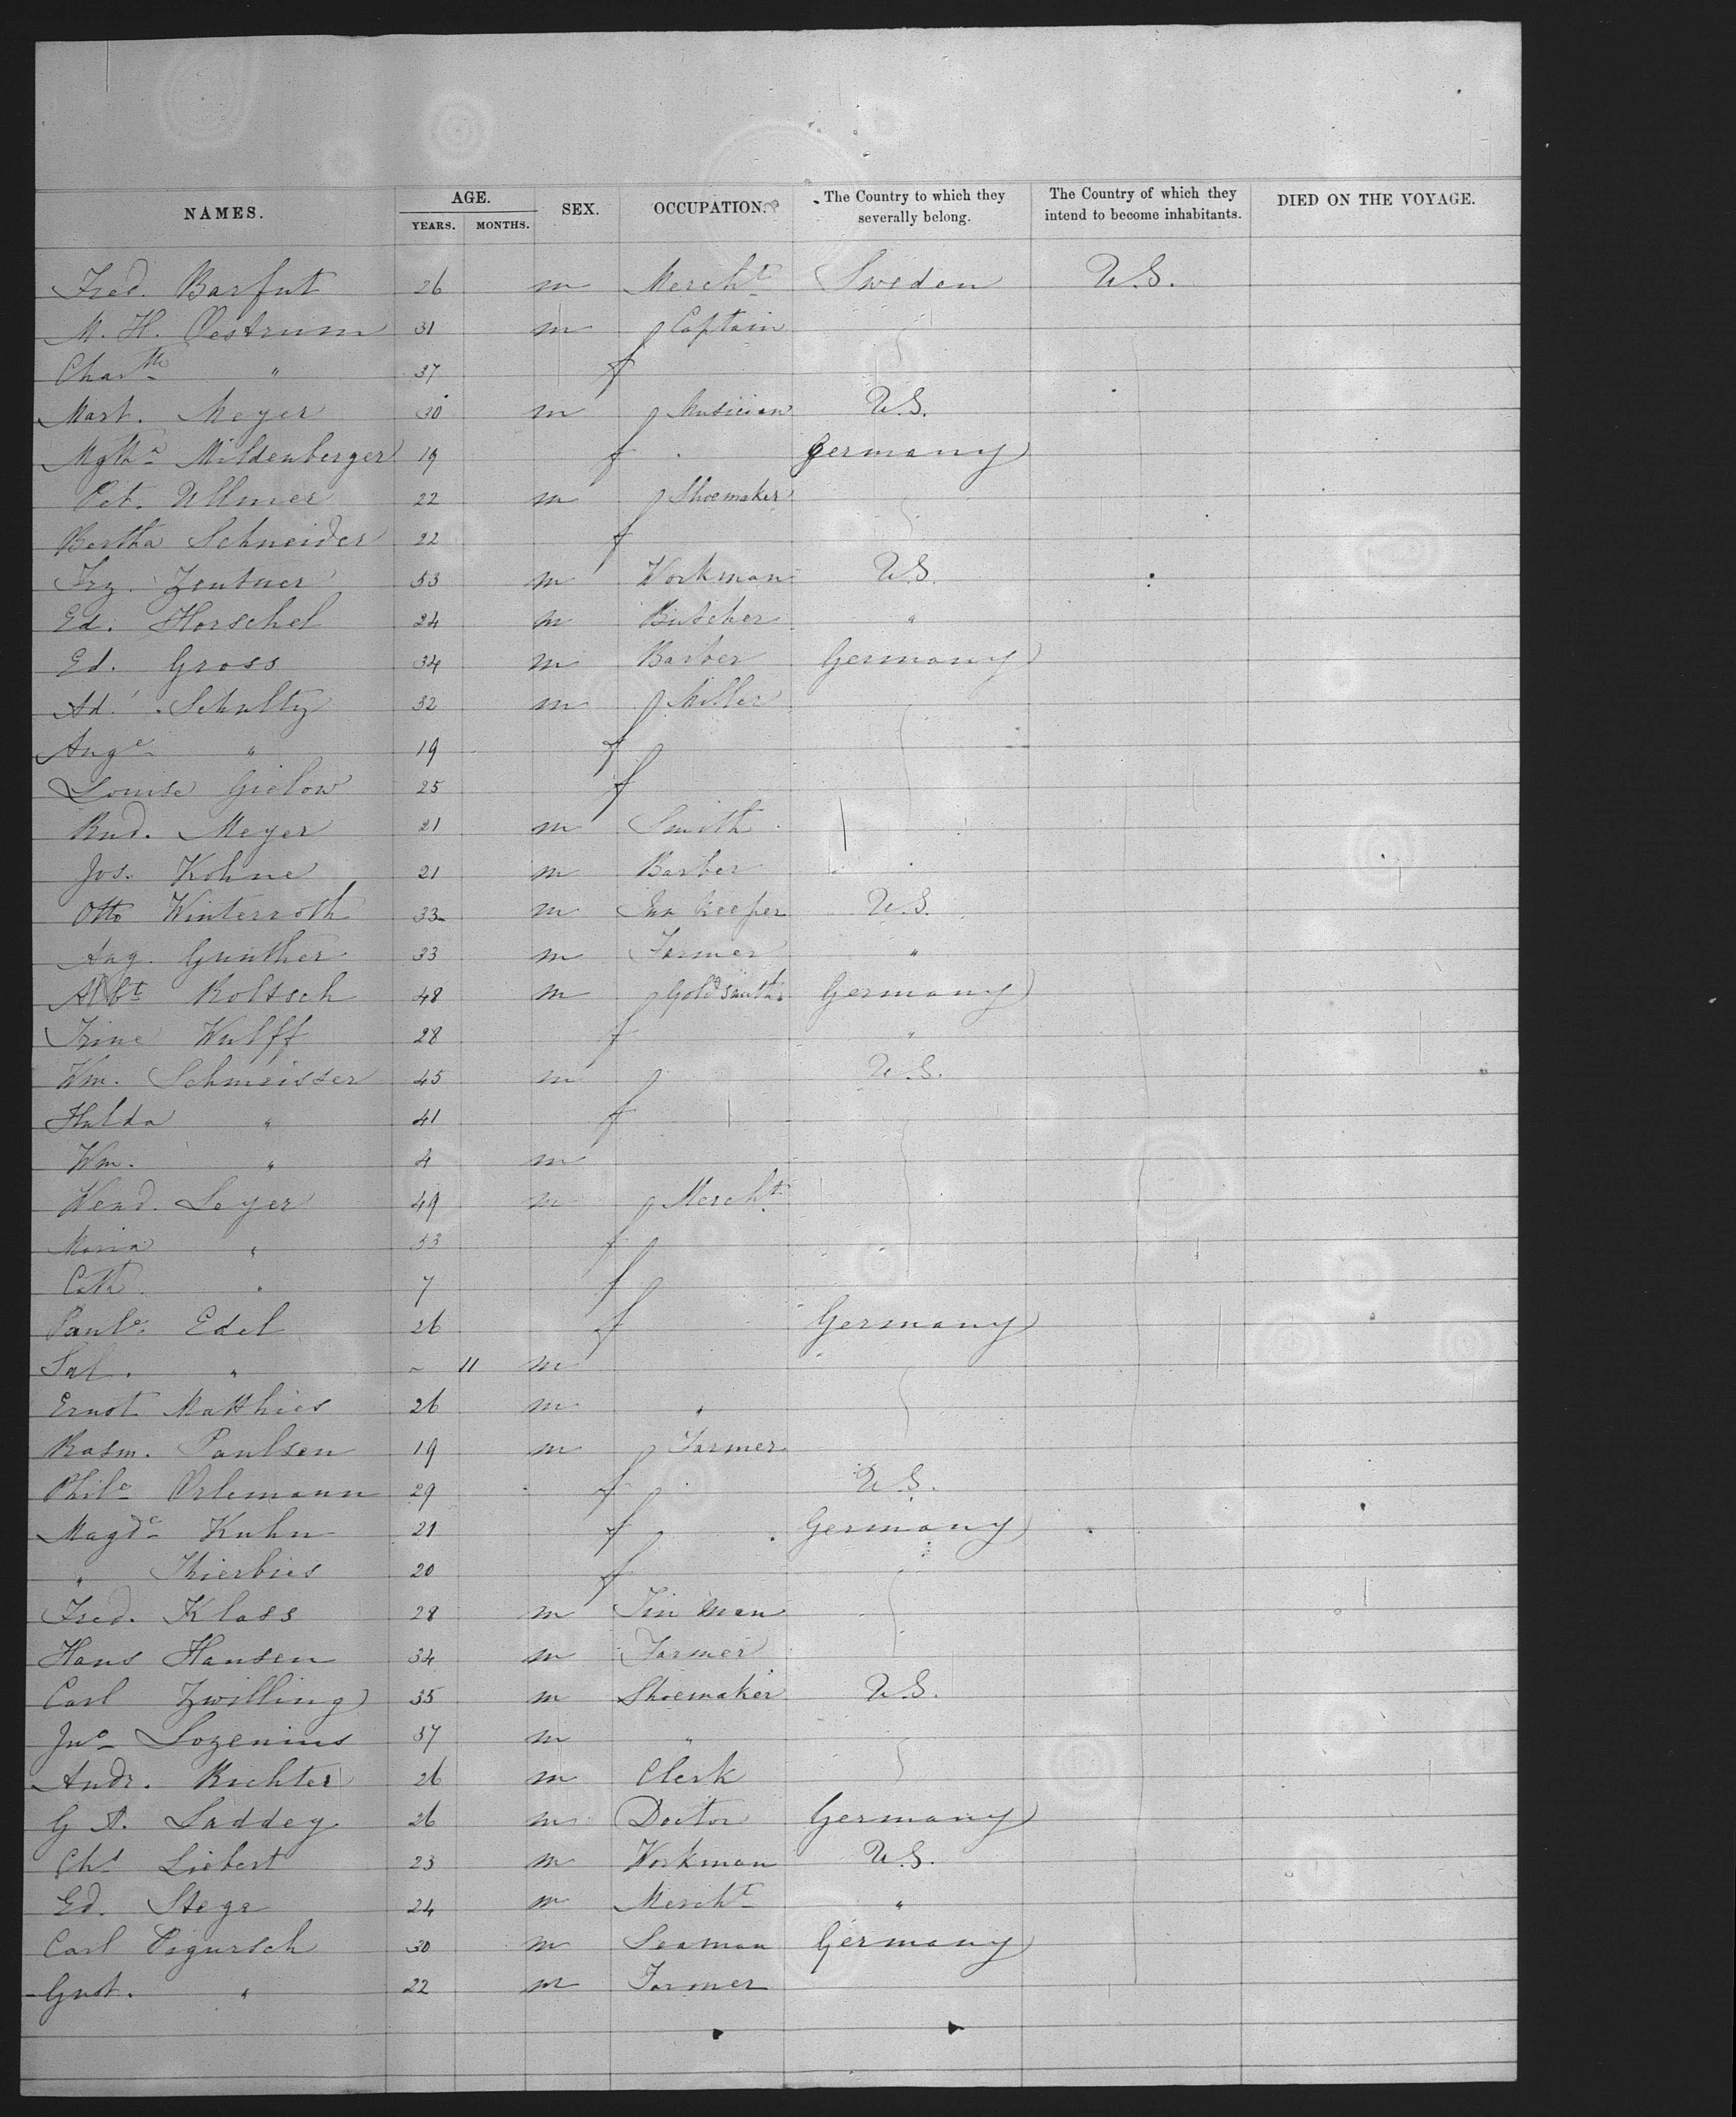 NAMES. AGE. YEARS. MONTHS. SEX. OCCUPATION. The Country to which they severally belong. The Country of which they intend to become inhabitants. DIED ON THE VOYAGE.
Fred. Barfut 26 m Mercht Sweden U.S.
M. H. Oestrum 31 m Captain
Chartte " 37 f
Mart. Meyer 30 m Musician U.S.
Mgtha Mildenberger 19 f Germany
Pet. Ullmer 22 m Shoemaker
Bertha Schneider 22 f
Frz. Zentner 53 m Workman U.S.
Ed. Horschel 24 m Butcher "
Ed. Gross 34 m Barber Germany
Ad. Schultz 32 m Miller
Auge " 19 f
Louise Gielow 25 f
Rud. Meyer 21 m Smith
Jos. Kohne 21 m Barber
Otto Winterroth 33 m Inn Keeper U.S.
Aug. Gunther 33 m Farmer "
Albt Koltsch 48 m Goldsmith Germany
Trine Wulff 28 f "
Wm. Schmeisser 45 m U.S.
Hulda " 41 f
Wm. " 4 m
Wend. Leyer 49 m Mercht
Maria " 53 f
Cath. " 7 f
Paule Edel 26 f Germany
Sal. " ~ 11 m
Ernst Matthies 26 m "
Rasm. Paulsen 19 m Farmer
Phile Orlemann 29 f U.S.
Magde Kuhn 21 f Germany
" Thierbies 20 f
Fred. Klass 28 m Tin man
Hans Hansen 34 m Farmer
Carl Zwilling 35 m Shoemaker U.S.
Jno Lozenius 37 m "
Andr. Richter 26 m Clerk
G A. Laddey 26 m Doctor Germany
Chs Liebert 23 m Workman U.S.
Ed. Stege 24 m Mercht "
Carl Pigursch 30 m Seaman Germany
Gust. " 22 m Farmer